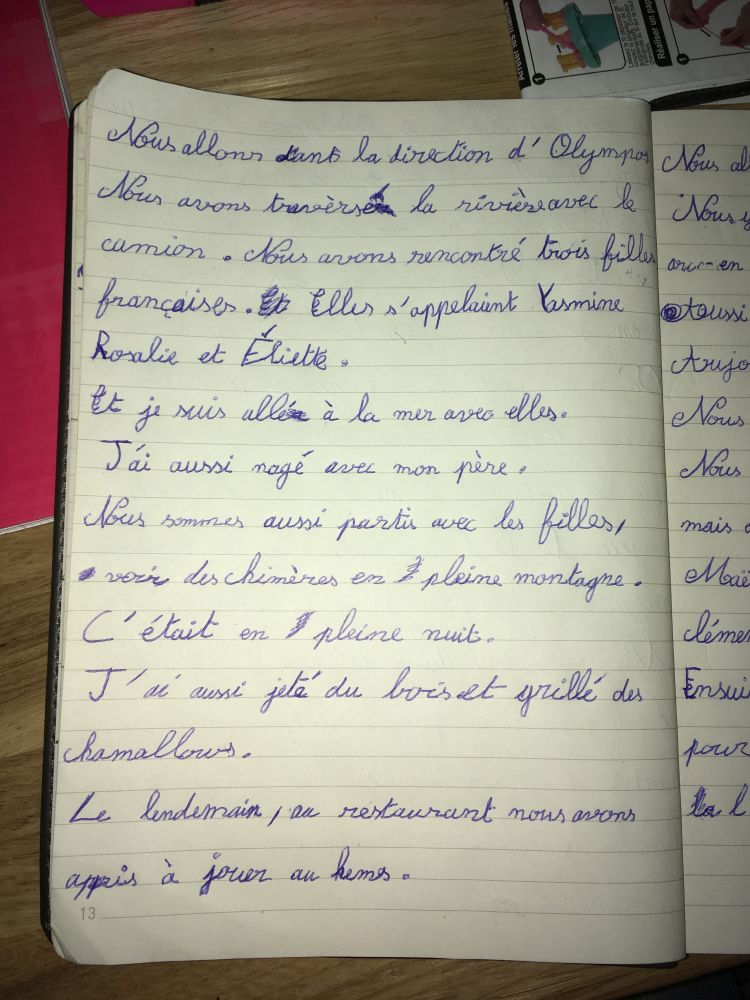 Nous allons dans la direction d'Olympos
Nous avons traversé la rivière avec le
camion. Nous avons rencontré trois filles
françaises. Elles s'appelaint Yasmine
Rosalie et Éliette.
Et je suis allée à la mer avec elles.
J'ai aussi nagé avec mon père.
Nous sommes aussi partis avec les filles,
voir des chimères en pleine montagne.
C'était en pleine nuit.
J'ai aussi jeté du bois et grillé des
chamallows.
Le lendemain, au restaurant nous avons
appris à jouer au
13
Nous al
Nous
arc-en
Toujo
Nous
Nous
mais
Maë
clémen
Ensui
pour
la l
Réaliser un pap
1
1